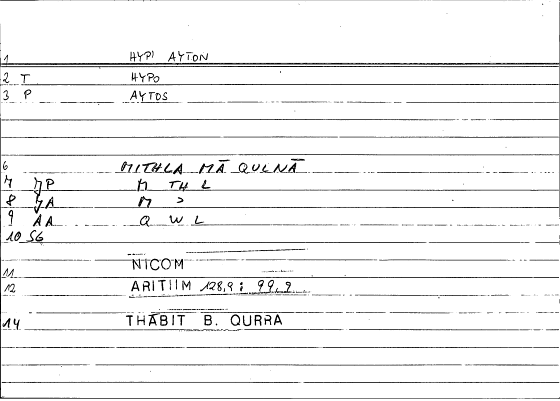 1 HYP' AYTON
2 T HYPO
3 P AYTOS
6 MITHLA MĀ QULNĀ
7 JP M TH L
8 JA M >
9 AA Q W L
10 SG
11 NICOM
12 ARITIIM 128,9 : 99,9
14 THĀBIT B. QURRA